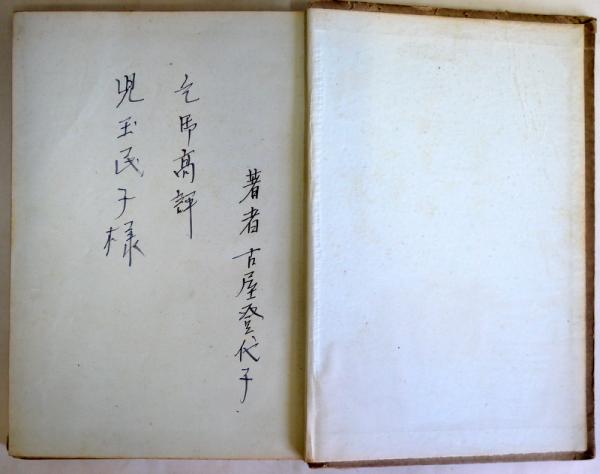 著者 古屋登代子
乞御高評
児玉民子様